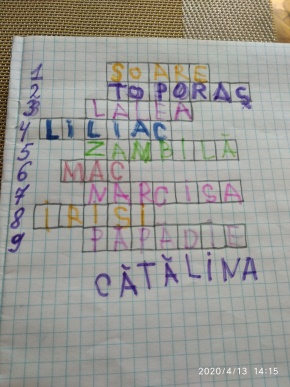 1 SOARE
2 TOPORAȘ
3 LALEA
4 LILIAC
5 ZAMBILĂ
6 MAC
7 NARCISA
8 IRISI
9 PAPADIE
CĂTĂLINA
2020/4/13 14:15